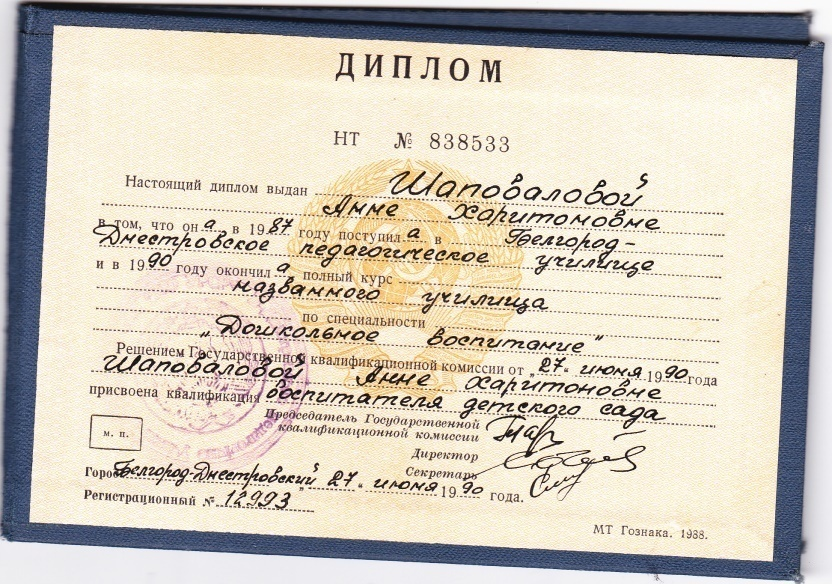 ДИПЛОМ
НТ № 838533
Настоящий диплом выдан Шаповаловой
Анне Харитоновне
в том, что она в 1987 году поступила в Белгород-
Днестровское педагогическое училище
и в 1990 году окончила полный курс
названного училища
по специальности
„Дошкольное воспитание"
Решением Государственной квалификационной комиссии от „27" июня 1990 года
Шаповаловой Анне Харитоновне
присвоена квалификация воспитателя детского сада
Председатель Государственной
квалификационной комиссии
м. п.
Директор
Секретарь
Город Белгород-Днестровский „27" июня 1990 года.
Регистрационный № 12993
МТ Гознака. 1988.